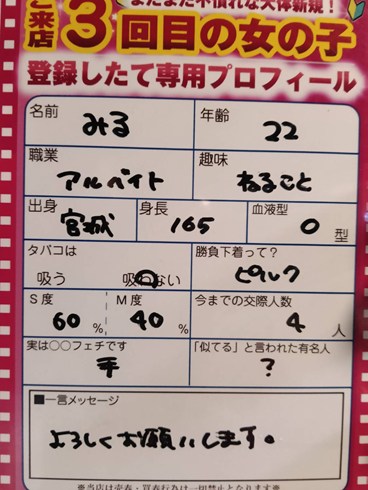 まだまだ不慣れな大体新規！
ご来店3回目の女の子
登録したて専用プロフィール
名前 みる 年齢 22
職業 アルバイト 趣味 ねること
出身 宮城 身長 165 血液型 O型
タバコは 吸う 吸わない 勝負下着って？ ピンク
S度 60% M度 40% 今までの交際人数 4人
実は○○フェチです 手 「似てる」と言われた有名人 ？
■一言メッセージ
よろしくお願いします。
※当店は売春・買春行為は一切禁止となります※